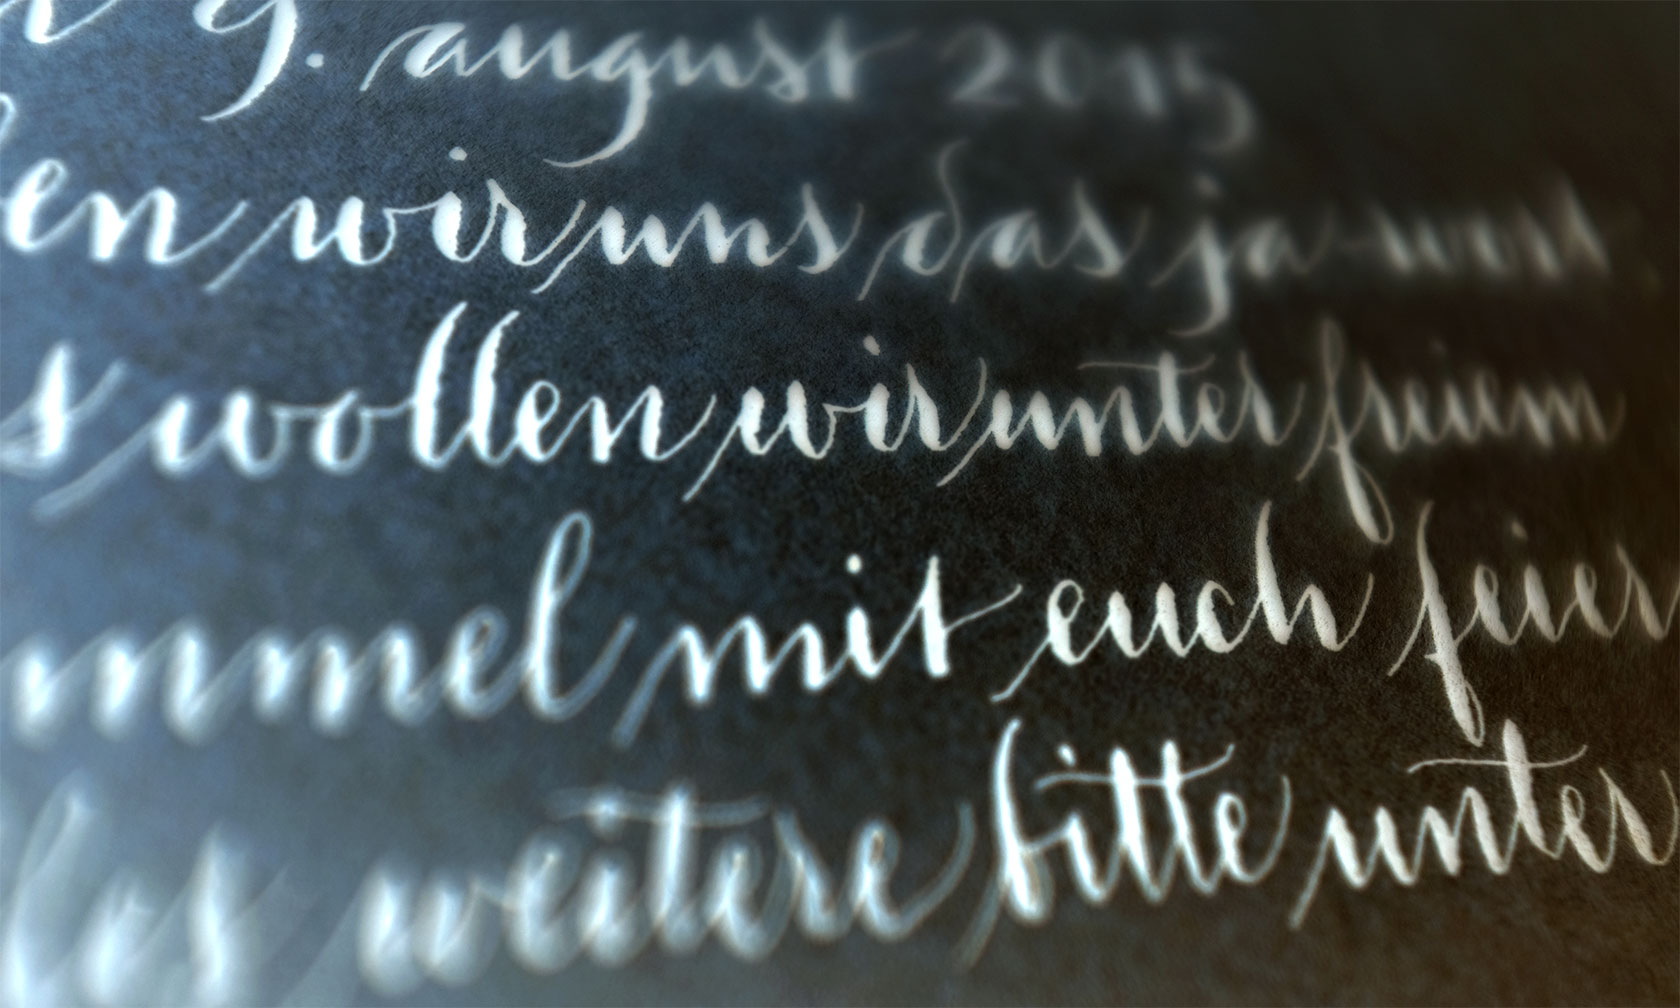 9. august 2015
en wir uns das ja wort
s wollen wir unter freiem
mmel mit euch feier
les weitere bitte unter